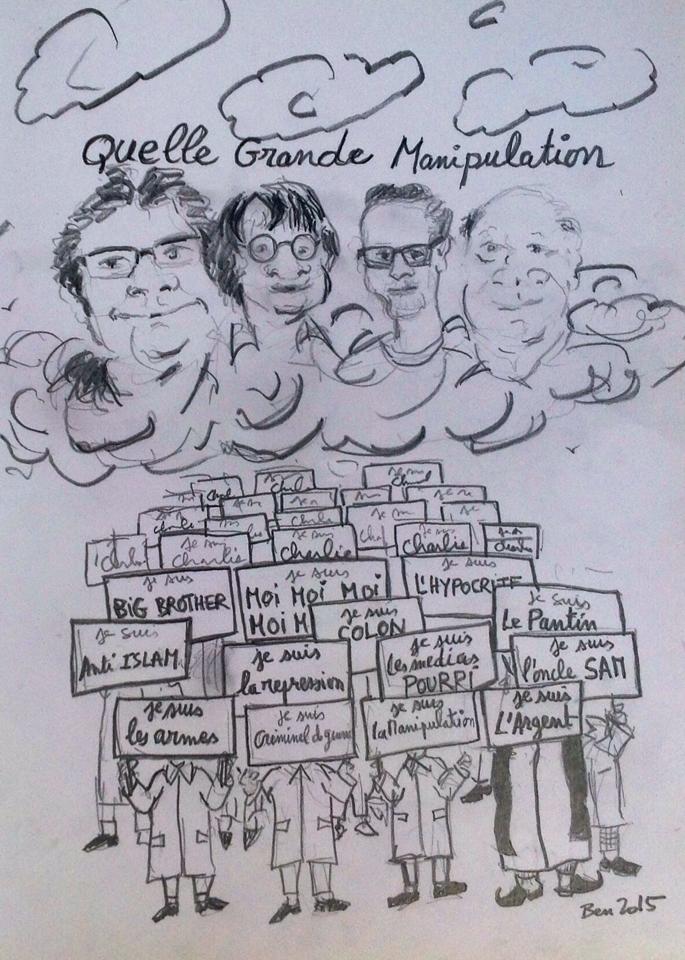 Quelle Grande Manipulation
je suis
Charlie
je suis
Charlie
je suis
Charlie
je suis
charlie
je suis
BiG BROTHER
je suis
Moi Moi Moi
Moi M
je suis
L'HYPOCRITE
je suis
COLON
Je Suis
Le Pantin
Je suis
Anti ISLAM
je suis
la repression
je suis
les medias
POURRi
je suis
l'oncle SAM
je suis
les armes
je suis
Criminel de guerre
je suis
la Manipulation
je suis
L'Argent
Ben 2015